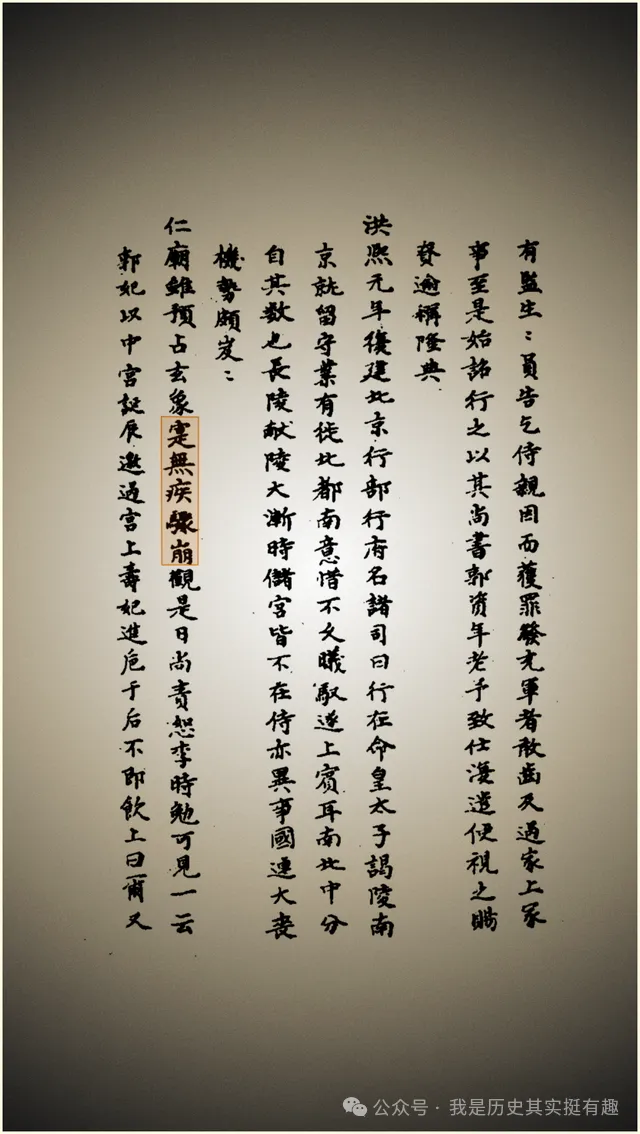 有監生〻員告乞侍親因而獲罪發充軍者敢齒及過家上冢
事至是始詔行之以其尚書郭資年老予致仕海遣使視之賜
賚逾稱隆典
洪熙元年復建北京行部行府名諸司曰行在命皇太子謁陵南
京就留守業有徙北都南意惜不久曦馭遂上賓耳南北中分
自其數也長陵献陵大漸時儲宮皆不在侍亦異事國連大喪
機勢頗岌〻
仁廟雖預占玄象寔無疾驟崩觀是日尚責恕李時勉可見一云
郭妃以中宮誕辰邀過宮上壽妃進卮于后不即飲上曰爾又
公众号 · 我是历史其实挺有趣